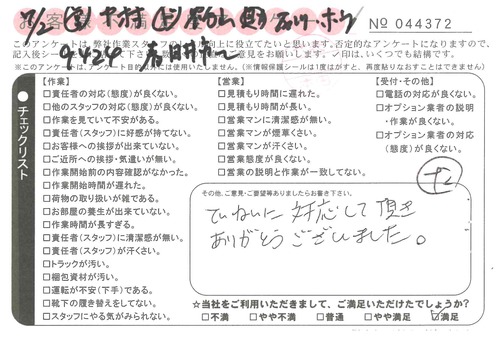 7/2
No 044372
9424
このアンケートは、弊社作業スタッフの
向上に役立てたいと思います。否定的なアンケートになりますので、
印は、いくつでも結構です。
(※このアンケートは、アンケート目的以外には使用いたしません。(※情報保護シールは1度はがすと、再度貼りなおすことはできません)
チェックリスト
【作業】
□責任者の対応(態度)が良くない。
□他のスタッフの対応(態度)が良くない。
□作業を見ていて不安がある。
□責任者(スタッフ)に好感が持てない。
□お客様への挨拶が出来ていない。
□ご近所への挨拶・気遣いが無い。
□作業開始前の内容確認がなかった。
□作業開始時間が遅れた。
□荷物の取り扱いが雑である。
□お部屋の養生が出来ていない。
□作業時間が長すぎる。
□責任者(スタッフ)に清潔感が無い。
□責任者(スタッフ)が汗くさい。
□トラックが汚い。
□梱包資材が汚い。
□運転が不安(下手)である。
□靴下の履き替えをしてない。
□スタッフにやる気がみられない。
【営業】
□見積もり時間に遅れた。
□見積もり時間が長い。
□営業マンに清潔感が無い。
□営業マンが煙草くさい。
□営業マンが汗くさい。
□営業態度が良くない。
□営業の説明と作業が一致してない。
【受付・その他】
□電話の対応が良くない。
□オプション業者の説明
・作業が良くない。
□オプション業者の対応
(態度)が良くない。
その他、ご意見・ご要望等ありましたらお書き下さい。
ていねいに対応して頂き
ありがとうございました。
☆当社をご利用いただきまして、ご満足いただけたでしょうか?
□不満 □やや不満 □普通 □やや満足 ☑満足